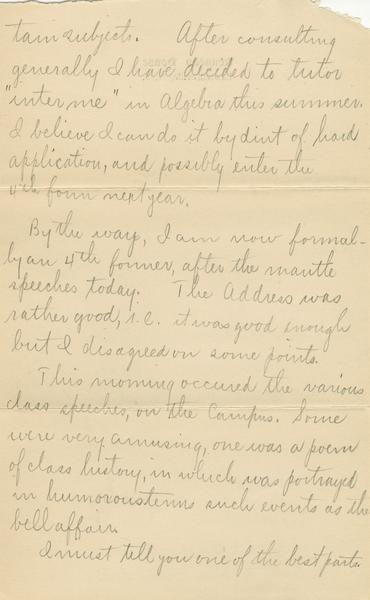 tain subjects. After consulting
generally I have decided to tutor
"inter, me" in Algebra this summer.
I believe I can do it by dint of hard
application, and possibly enter the
4th form next year.
By the way, I am now formal-
ly an 4th former, after the mantle
speeches today. The Address was
rather good, i.e. it was good enough
but I disagreed on some points.
This morning occured the various
class speeches, on the Campus. Some
were very amusing, one was a poem
of class history, in which was portrayed
in humorous terms such events as the
bell affair.
I must tell you one of the best parts.